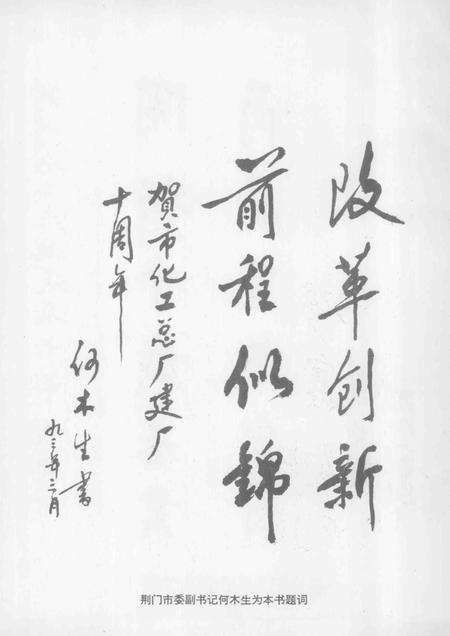 改革创新
前程似錦
賀市化工总厂建厂
十周年
何木生書
九三年二月
荆门市委副书记何木生为本书题词